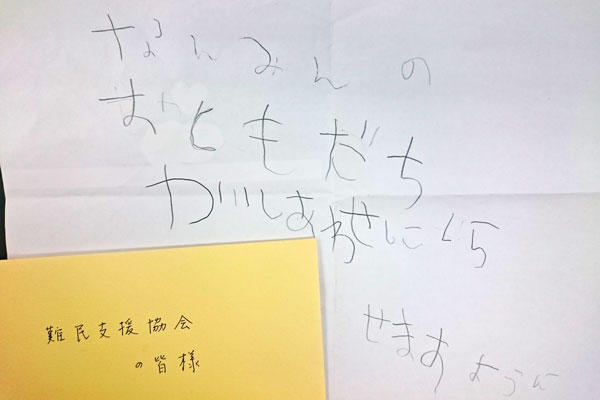 なんみんの
おともだち
がしあわせにくら
せますように
難民支援協会
の皆様